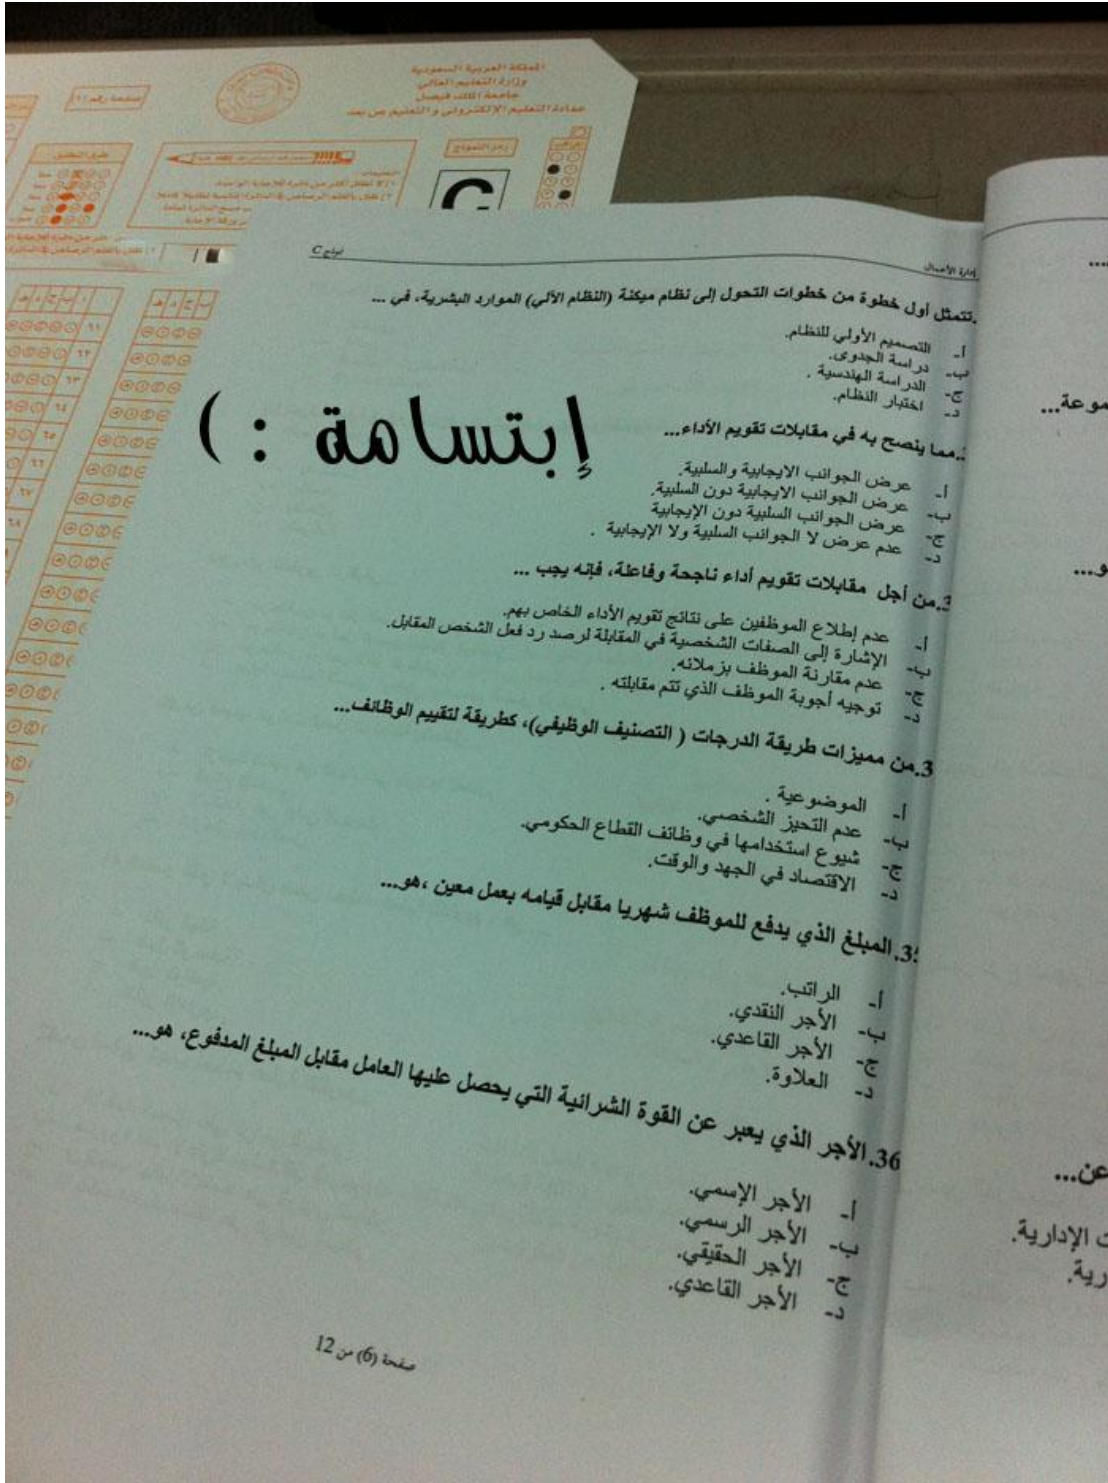 المملكة العربية السعودية
وزارة التعليم العالي
جامعة الملك فيصل
عمادة التعليم الإلكتروني والتعليم عن بعد
صفحة رقم (١)
رمز النموذج
C
نموذج C
إدارة الأعمال
.تتمثل أول خطوة من خطوات التحول إلى نظام ميكنة (النظام الآلي) الموارد البشرية، في ...
أ- التصميم الأولي للنظام.
ب- دراسة الجدوى.
ج- الدراسة الهندسية .
د- اختبار النظام.
إبتسامة : )
.مما ينصح به في مقابلات تقويم الأداء...
أ- عرض الجوانب الايجابية والسلبية.
ب- عرض الجوانب الايجابية دون السلبية.
ج- عرض الجوانب السلبية دون الإيجابية
د- عدم عرض لا الجوانب السلبية ولا الإيجابية .
.من أجل مقابلات تقويم أداء ناجحة وفاعلة، فإنه يجب ...
أ- عدم إطلاع الموظفين على نتائج تقويم الأداء الخاص بهم.
ب- الإشارة إلى الصفات الشخصية في المقابلة لرصد رد فعل الشخص المقابل.
ج- عدم مقارنة الموظف بزملائه.
د- توجيه أجوبة الموظف الذي تتم مقابلته .
3.من مميزات طريقة الدرجات ( التصنيف الوظيفي)، كطريقة لتقييم الوظائف...
أ- الموضوعية .
ب- عدم التحيز الشخصي.
ج- شيوع استخدامها في وظائف القطاع الحكومي.
د- الاقتصاد في الجهد والوقت.
35.المبلغ الذي يدفع للموظف شهريا مقابل قيامه بعمل معين ،هو...
أ- الراتب.
ب- الأجر النقدي.
ج- الأجر القاعدي.
د- العلاوة.
36.الأجر الذي يعبر عن القوة الشرائية التي يحصل عليها العامل مقابل المبلغ المدفوع، هو...
أ- الأجر الإسمي.
ب- الأجر الرسمي.
ج- الأجر الحقيقي.
د- الأجر القاعدي.
صفحة (6) من 12